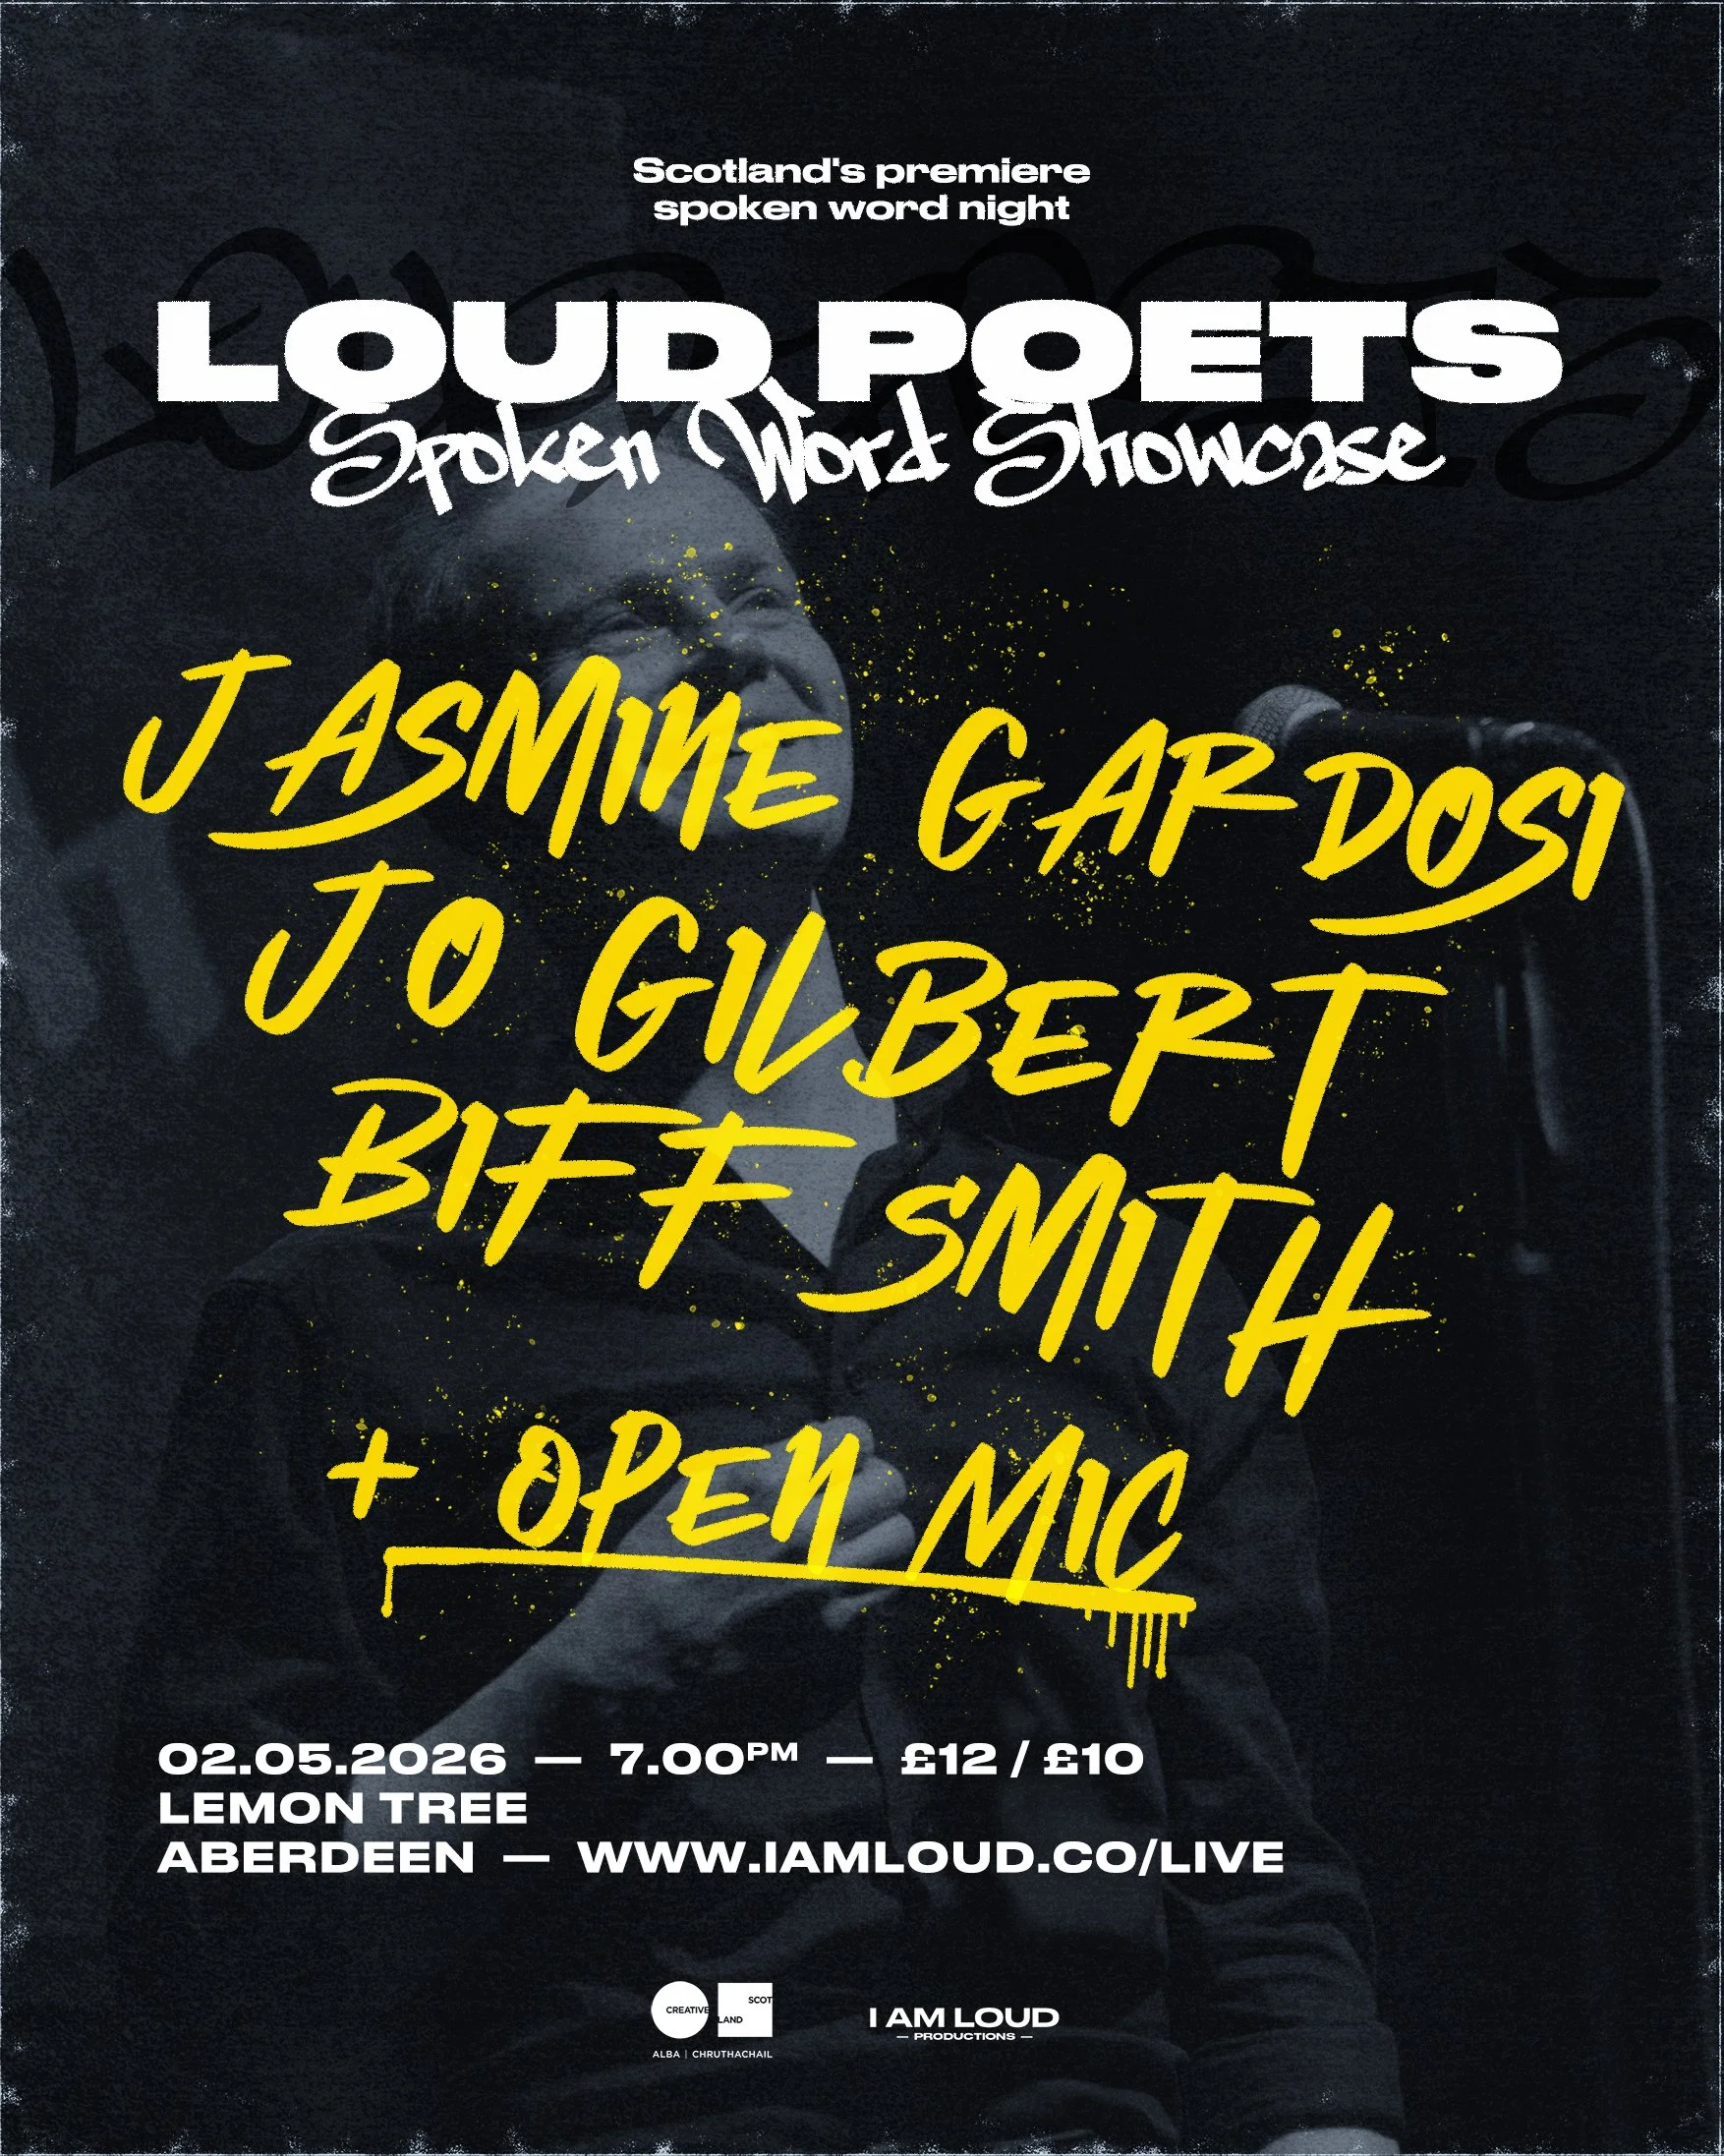 Scotland's premiere
spoken word night
LOUD POETS
Spoken Word Showcase
JASMINE GARDOSI
JO GILBERT
BIFF SMITH
+ OPEN MIC
02.05.2026 — 7.00PM — £12 / £10
LEMON TREE
ABERDEEN — WWW.IAMLOUD.CO/LIVE
CREATIVE SCOT
LAND
ALBA | CHRUTHACHAIL
I AM LOUD
— PRODUCTIONS —